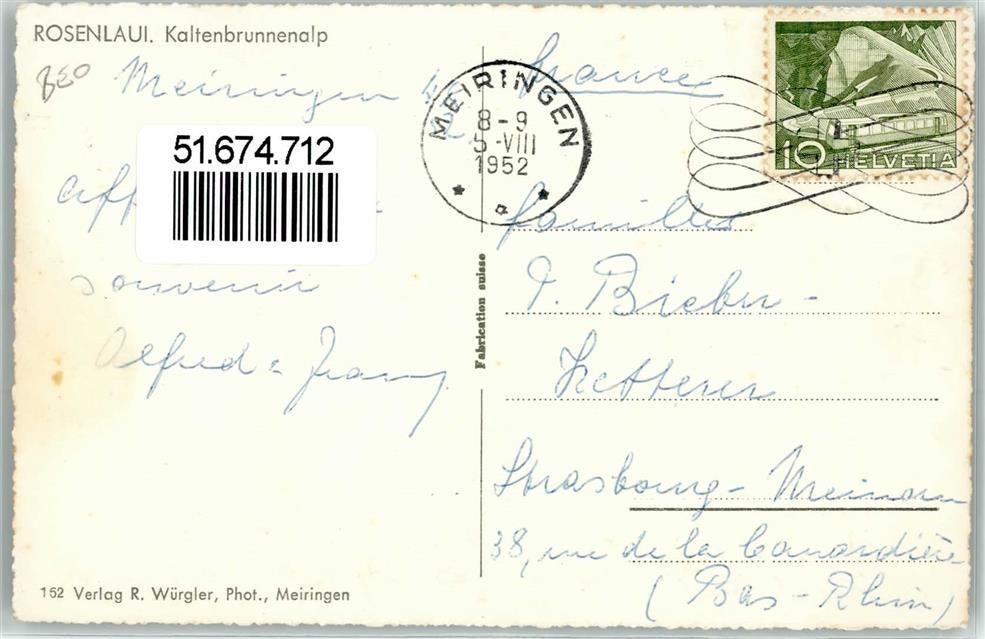 ROSENLAUI. Kaltenbrunnenalp
BEO
Meiringen
51.674.712
souvenir
Alfred =
162 Verlag R. Würgler, Phot., Meiringen
Fabrication suisse
MEIRINGEN
8-9
5.-VIII
1952
10 HELVETIA
france
familles
Bieber -
Ketterer
Strasbourg - Meinau
38, rue de la Canardière
(Bas-Rhin)